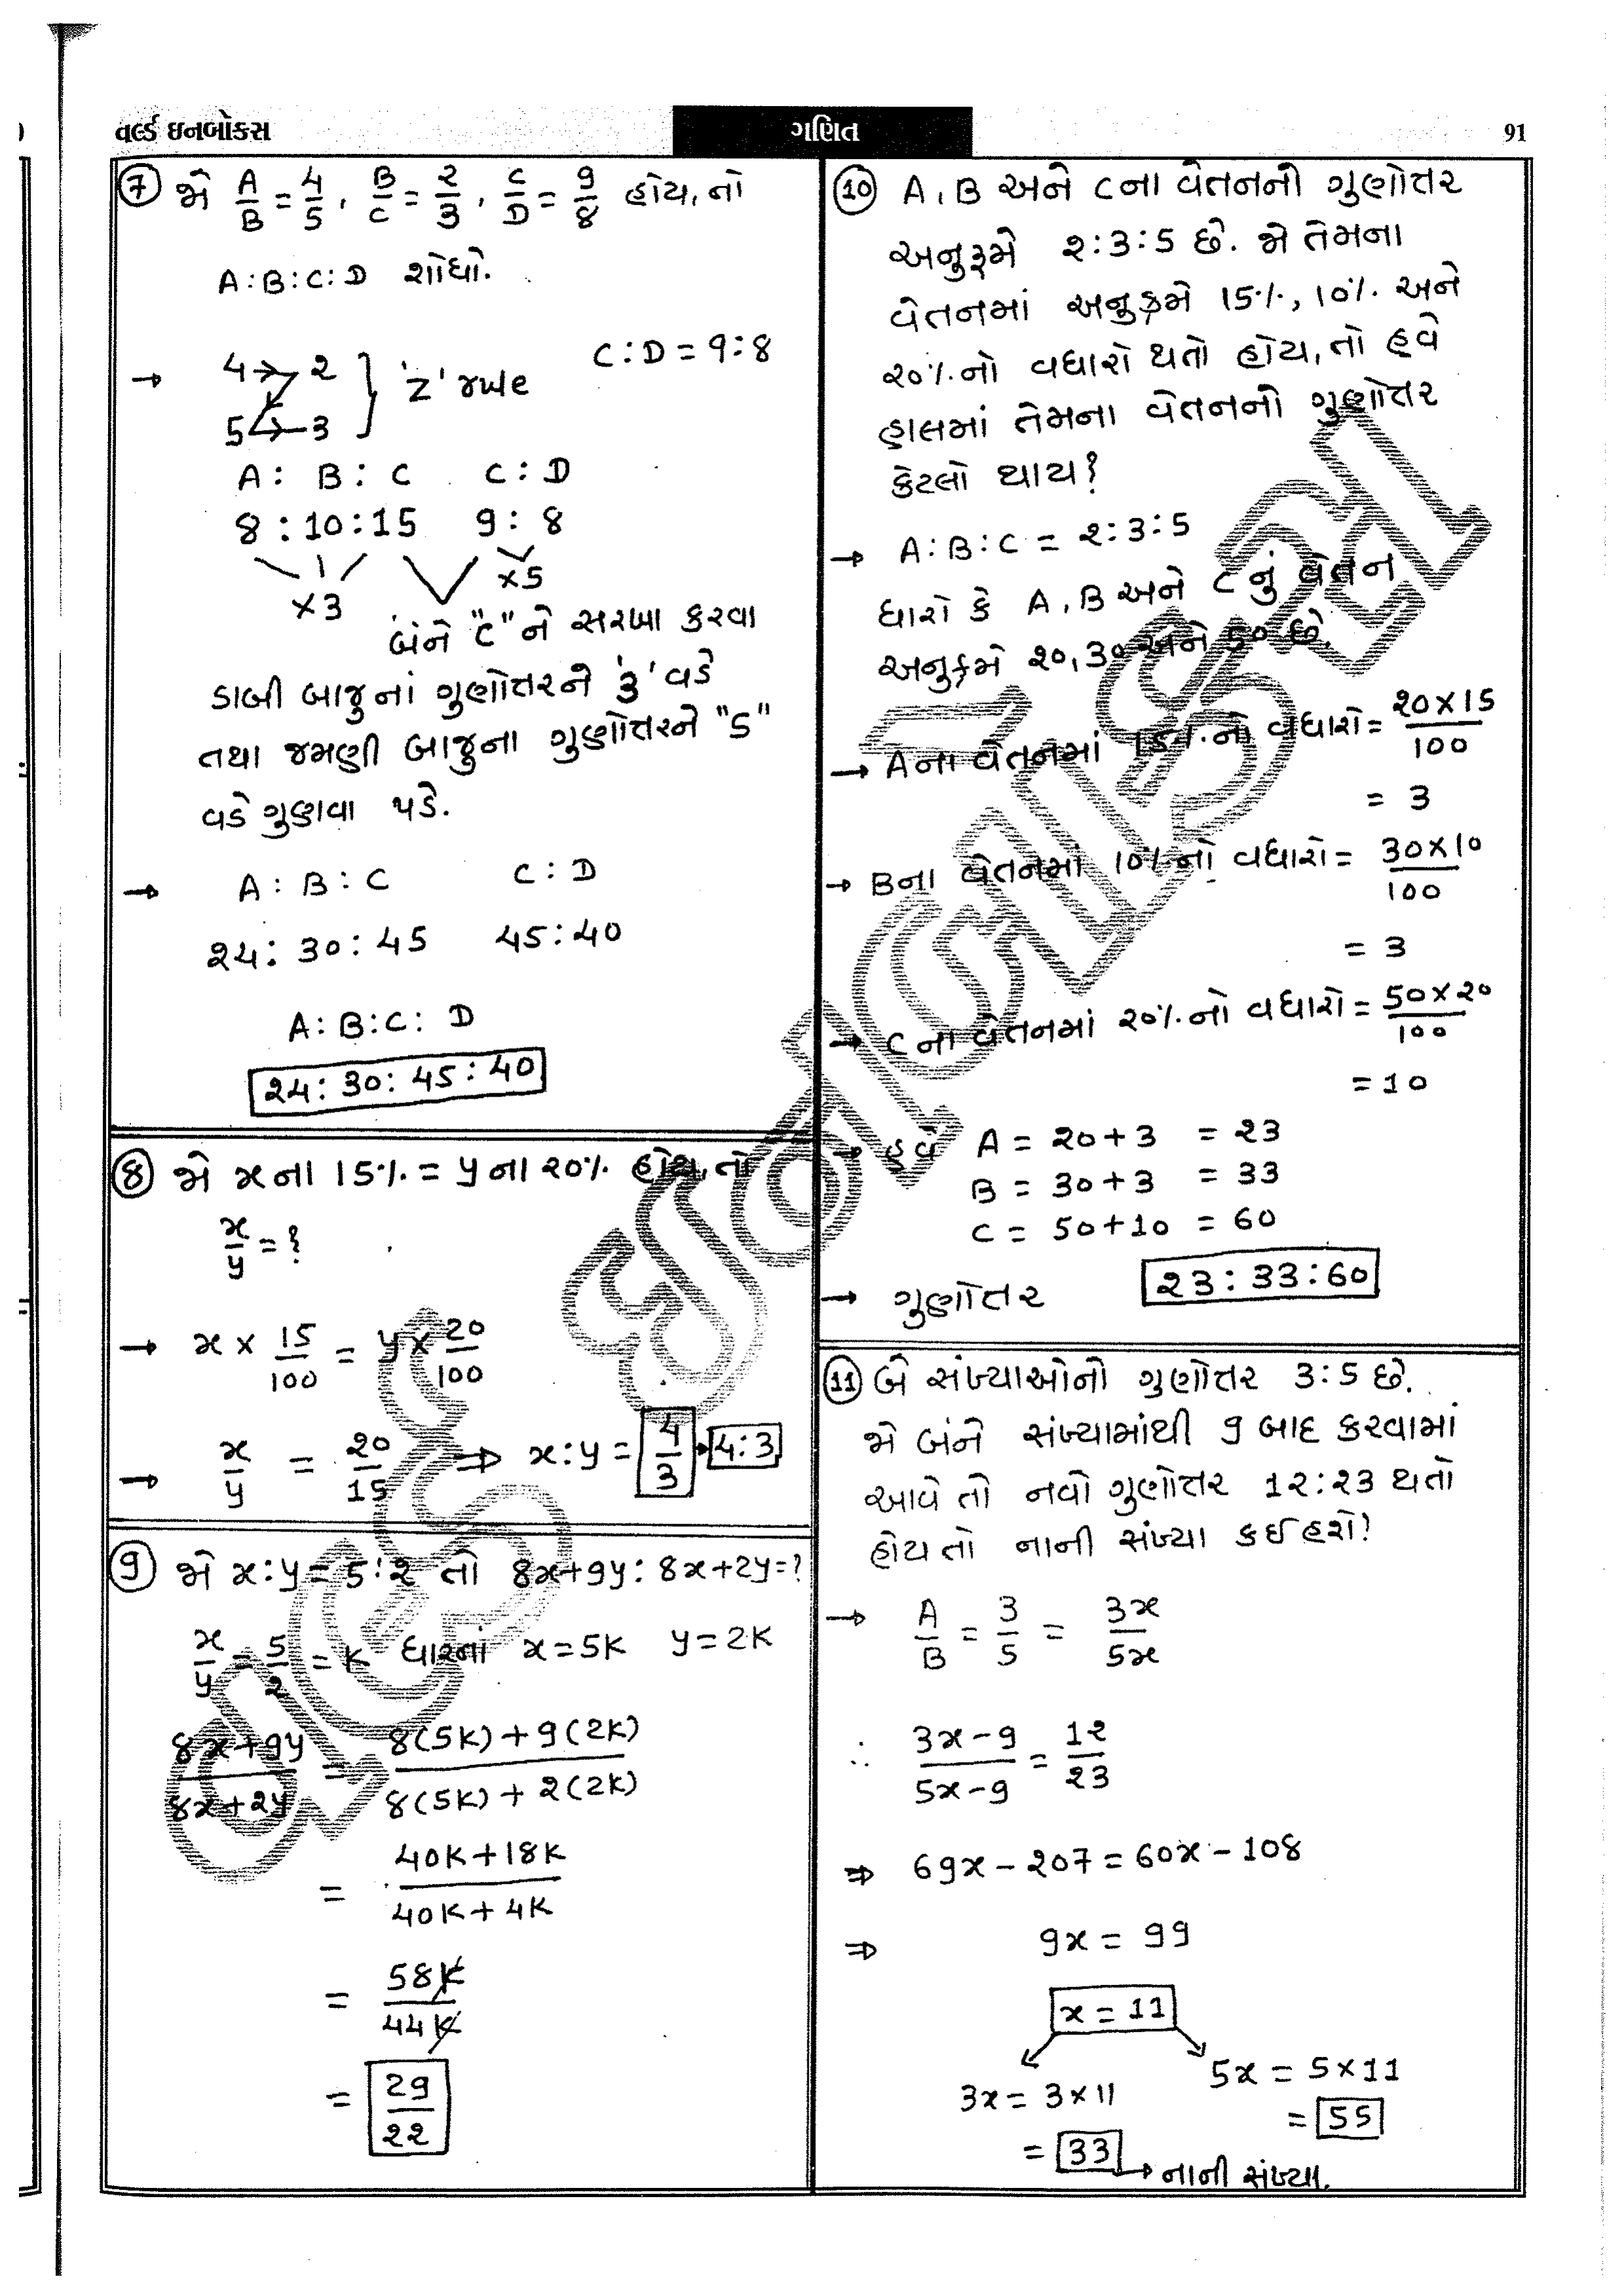 વર્લ્ડ ઇનબોક્સ
ગણિત
91
7 જો A/B = 4/5, B/C = 2/3, C/D = 9/8 હોય, તો
A:B:C:D શોધો.
→ 4 2 } 'Z' rule C:D = 9:8
5 3
A: B: C C:D
8:10:15 9:8
×3 ×5
બંને "C" ને સરખા કરવા
ડાબી બાજુનાં ગુણોત્તરને '3' વડે
તથા જમણી બાજુના ગુણોત્તરને "5"
વડે ગુણવા પડે.
→ A:B:C C:D
24:30:45 45:40
A:B:C:D
24:30:45:40
8 જો xના 15% = yના 20% હોય, તો
x/y = ?
→ x × 15/100 = y × 20/100
→ x/y = 20/15 ⇒ x:y = 4/3 → 4:3
9 જો x:y = 5:2 તો 8x+9y : 8x+2y = ?
x/y = 5/2 = K ધારતાં x=5K y=2K
8x+9y/8x+2y = 8(5K)+9(2K)/8(5K)+2(2K)
= 40K+18K/40K+4K
= 58K/44K
= 29/22
10 A, B અને Cના વેતનનો ગુણોત્તર
અનુક્રમે 2:3:5 છે. જો તેમના
વેતનમાં અનુક્રમે 15%, 10% અને
20%નો વધારો થતો હોય, તો હવે
હાલમાં તેમના વેતનનો ગુણોત્તર
કેટલો થાય?
→ A:B:C = 2:3:5
ધારો કે A, B અને C નું વેતન
અનુક્રમે 20, 30 અને 50 છે.
→ Aના વેતનમાં 15% નો વધારો = 20×15/100
= 3
→ Bના વેતનમાં 10% નો વધારો = 30×10/100
= 3
→ C ના વેતનમાં 20% નો વધારો = 50×20/100
= 10
→ હવે A = 20+3 = 23
B = 30+3 = 33
C = 50+10 = 60
→ ગુણોત્તર 23:33:60
11 બે સંખ્યાઓનો ગુણોત્તર 3:5 છે.
જો બંને સંખ્યામાંથી 9 બાદ કરવામાં
આવે તો નવો ગુણોત્તર 12:23 થતો
હોય તો નાની સંખ્યા કઈ હશે?
→ A/B = 3/5 = 3x/5x
∴ 3x-9/5x-9 = 12/23
⇒ 69x - 207 = 60x - 108
⇒ 9x = 99
x = 11
3x = 3×11 5x = 5×11
= 33 → નાની સંખ્યા. = 55